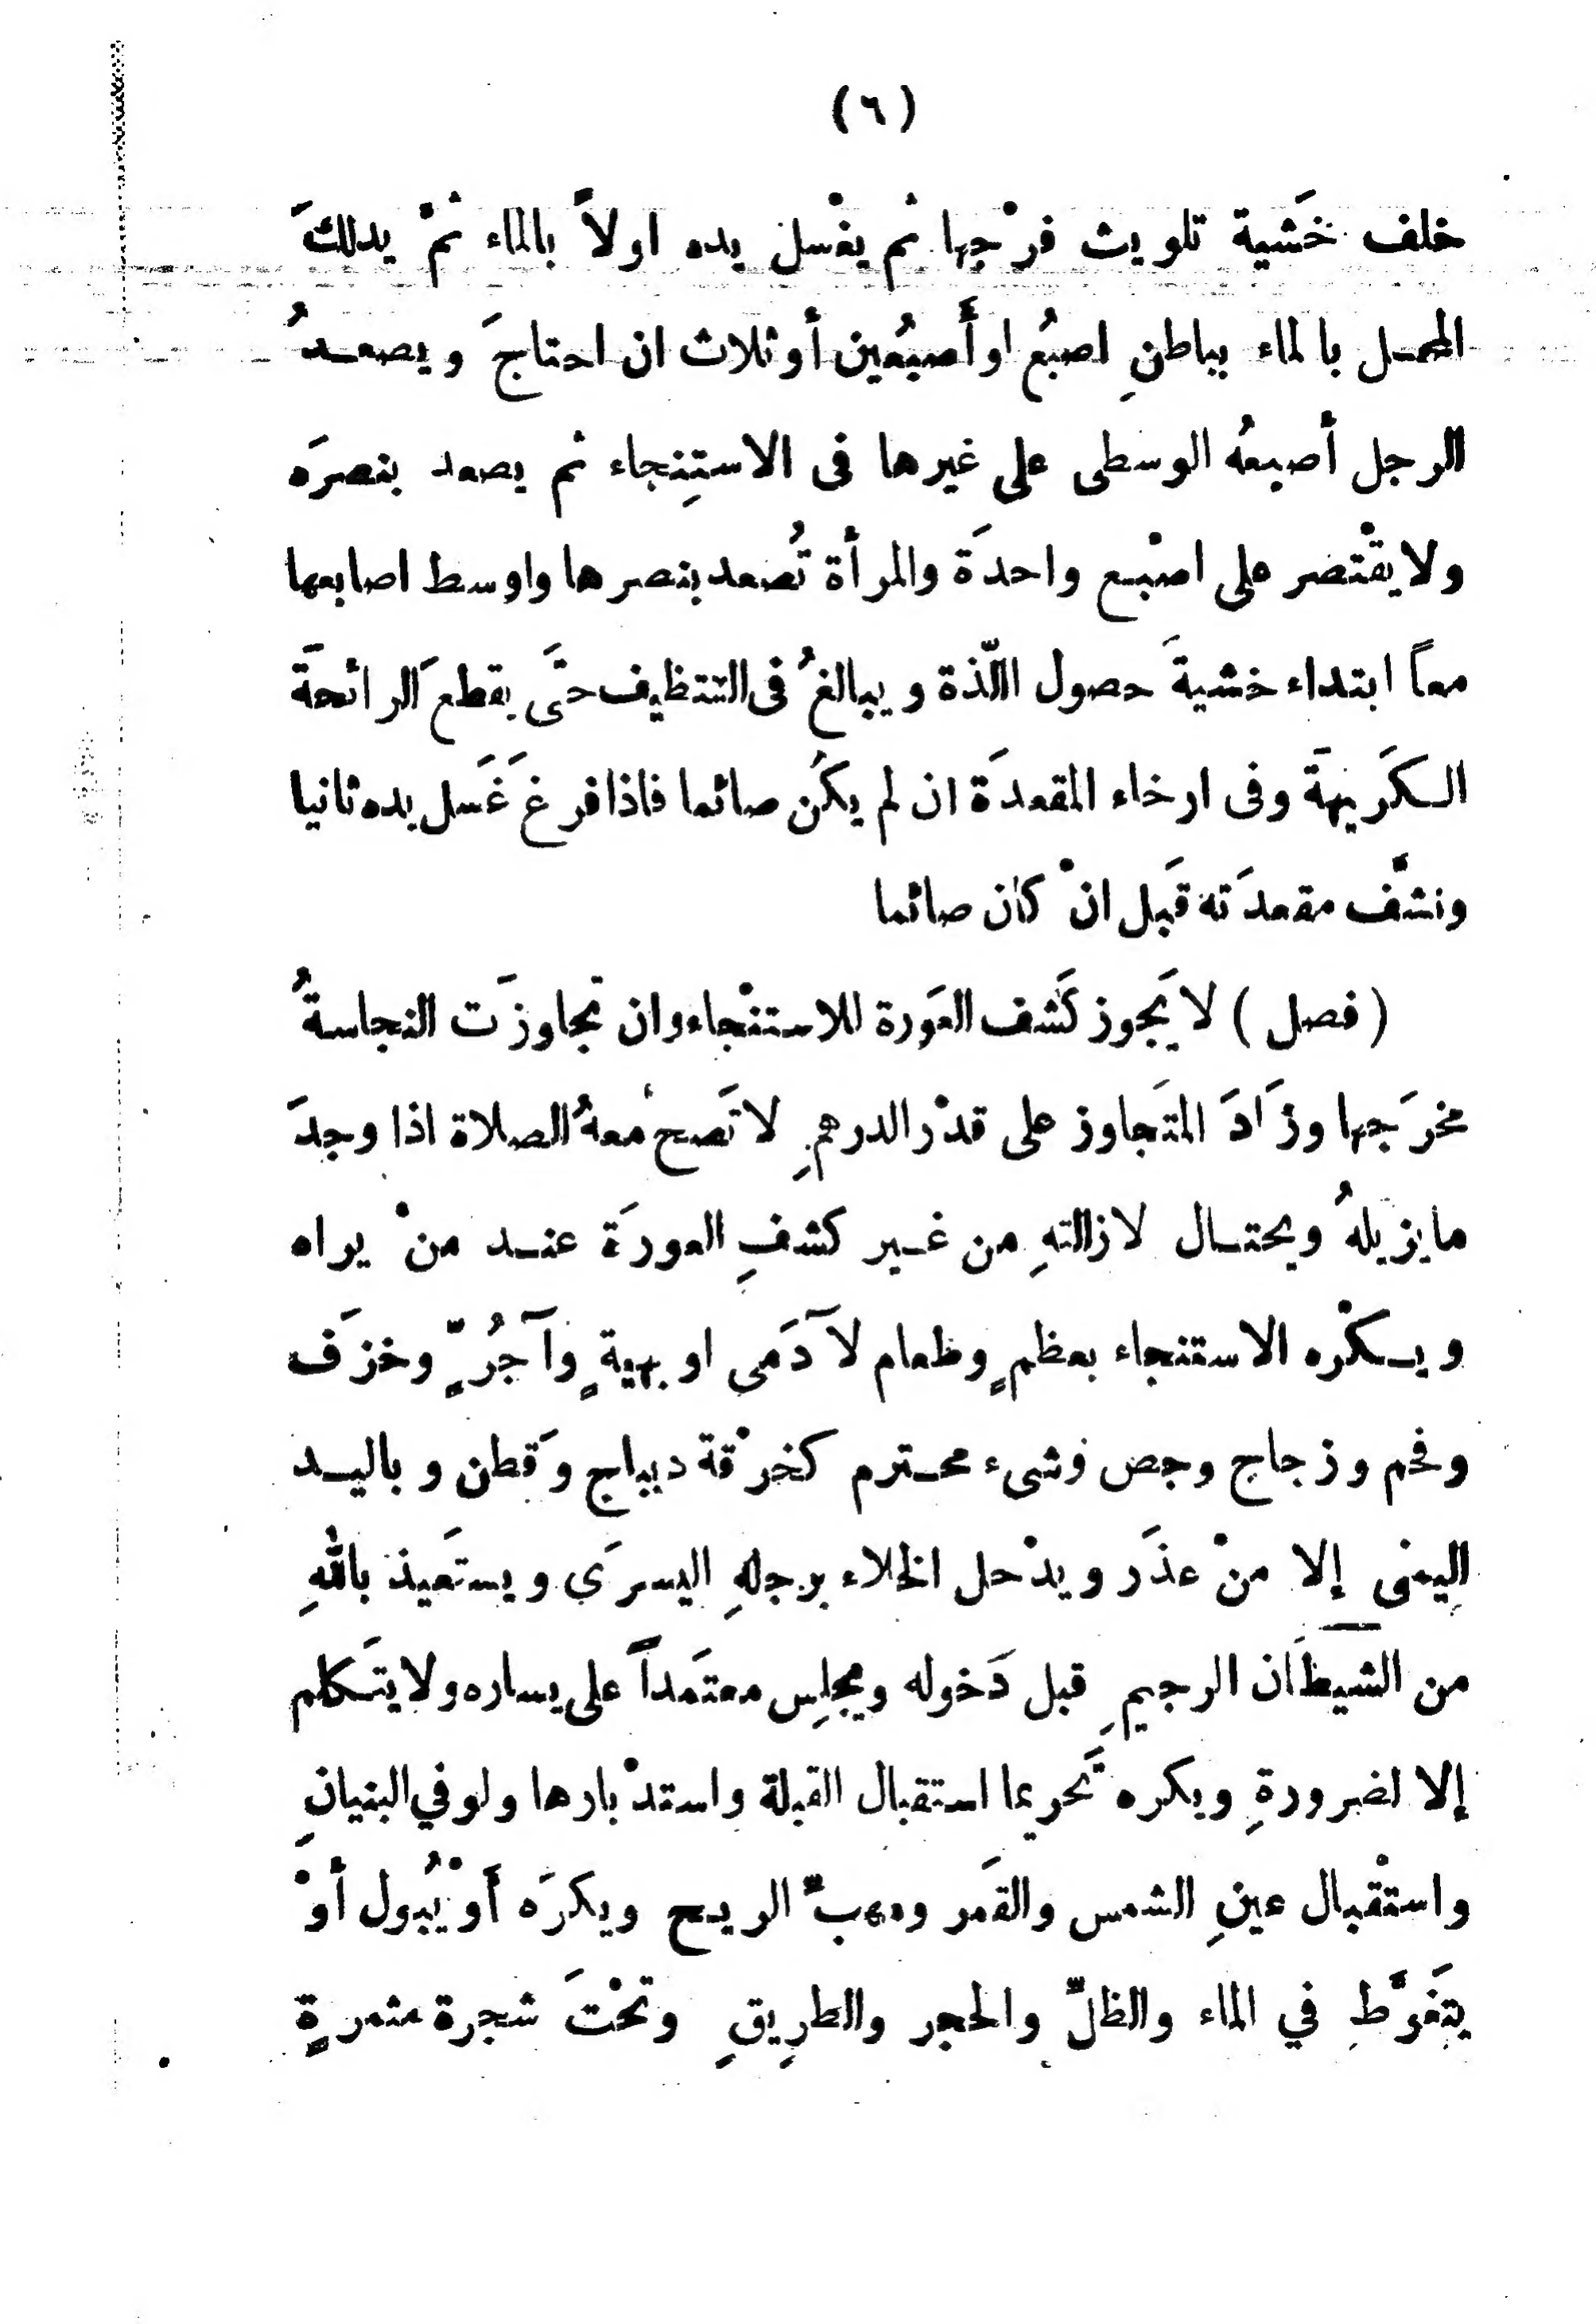 (٦)
خلف خَشية تلويث فرْجها ثم يغْسل يده اولاً بالماء ثمْ يدلكَ
المحل بالماء بباطنِ اصبُع او أَصبُعين أو ثلاث ان احتاجَ ويصعدُ
الرجل أصبعهُ الوسطى على غيرها فى الاستِنجاء ثم يصعد بنصرَه
ولا يقْتصر على اصْبع واحدَة والمرأة تُصعد بنصرها واوسط اصابعها
معاً ابتداء خشيةَ حصول اللّذة ويبالغُ فى التنظيف حتَّى يقطعَ الرائحةَ
الكَريهةَ وفى ارخاء المقعدَة ان لم يكُن صائما فاذا فرغَ غَسل يده ثانيا
ونشَّف مقعدَته قَبل انْ كان صائما
(فصل) لا يَجوز كَشف العَورة للاستنْجاء وان تجاوزَت النجاسةُ
مخرَجها وزَادَ المتَجاوز على قدْر الدرهمِ لا تَصح معهُ الصلاة اذا وجدَ
ما يزيلهُ ويحتال لازالتهِ من غير كشفِ العورَة عند منْ يراه
ويكْره الاستنجاء بعظمٍ وطعام لآدَمى او بهيمةٍ وآجُرٍّ وخزَف
وفحم وزجاج وجص وشىء محترم كخرْقة ديباج وَقطن وباليد
اليِمنى إلا منْ عذَر ويدْخل الخلاء برجلهِ اليسرَى ويستَعيذ باللهِ
من الشيطَان الرجيمِ قبل دَخوله ويجلِس معتَمداً على يساره ولا يتَكلم
إلا لضرورةِ ويكره تَحريما استقبال القبلة واستدْبارها ولو في البنيانِ
واستْقبال عينِ الشمس والقَمر ومهبِّ الريح ويكرَه أَوْ يُبْول أوْ
يتَغوَّط في الماء والظلِّ والحجر والطرِيقِ وتحْتَ شجرة مثمرةٍ